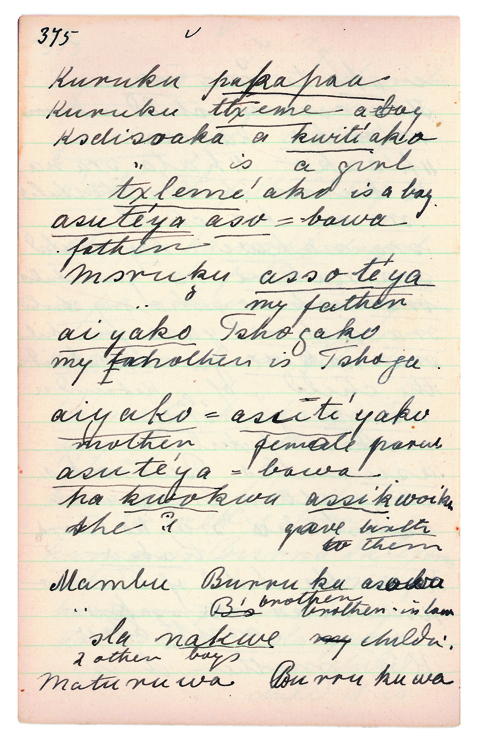 375
Kuruku papapaa
Kuruku tlxeme a boy
Ksdisoaka a kwiti'ako
" is a girl
txlemé ako is a boy
asutéya aso = bawa
father
Msruku assotéya
my father
aiyako Tshogako
my brother is Tshoga.
aiyako = asuti'yako
mother female parent
asutéya = bawa
ha kwokwa assikwoiku
she gave birth
to them
Mambu Burruku asowa
" B's brother brother-in-law
sla nakwe childr.
2 other boys
Maturuwa Burrukuwa